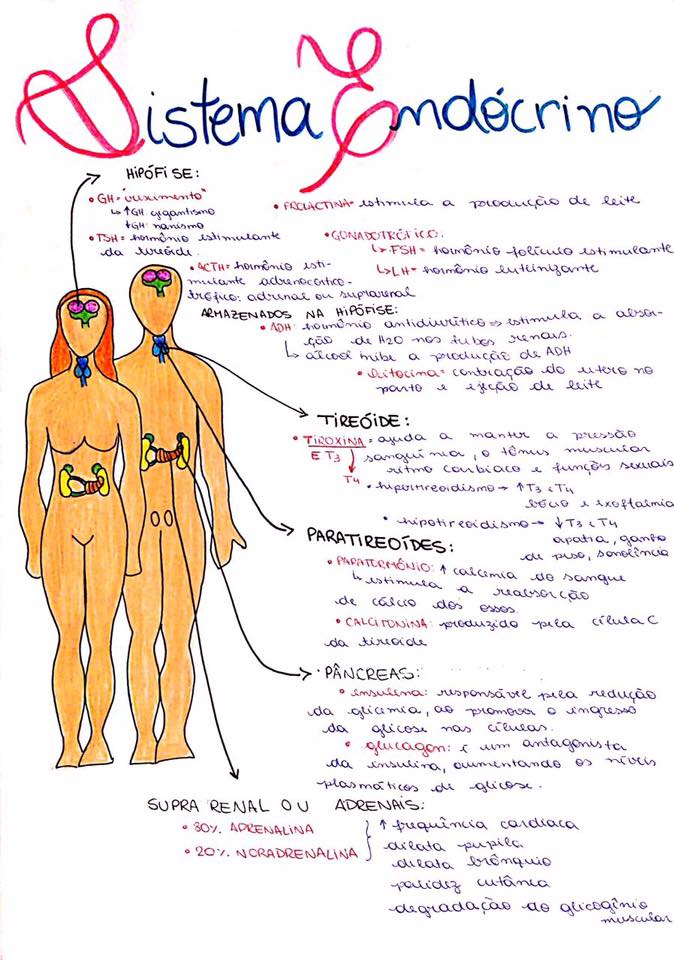 Sistema Endócrino
HIPÓFISE:
• GH = "crescimento"
↳ ↑GH gigantismo
↓GH: nanismo
• TSH = hormônio estimulante
da tireóide.
• ACTH = hormônio esti-
mulante adrenocórtico-
trófico: adrenal ou suprarenal
• PROLACTINA = estimula a produção de leite
• GONADOTRÓFICO:
↳ FSH = hormônio folículo estimulante
↳ LH = hormônio luteinizante
ARMAZENADOS NA HIPÓFISE:
• ADH: hormônio antidiurético ⇒ estimula a absor-
ção de H2O nos tubos renais.
↳ álcool inibe a produção de ADH
• Ocitocina = contração do útero no
parto e ejeção de leite
TIREÓIDE:
• TIROXINA = ajuda a manter a pressão
E T3 sanguínia, o tônus muscular
T4 ritmo cardíaco e funções sexuais
• hipertireoidismo → ↑T3 e T4
bócio e exoftalmia
• hipotireoidismo → ↓T3 e T4
apatia, ganho
de peso, sonolência
PARATIREOÍDES:
• PARATORMÔNIO: ↑ calcemia do sangue
↳ estimula a reabsorção
de cálcio dos ossos.
• CALCITONINA: produzido pela célula C
da tireoide
• PÂNCREAS:
• insulina: responsável pela redução
da glicemia, ao promover o ingresso
da glicose nas células.
• glucagon: é um antagonista
da insulina, aumentando os níveis
plasmáticos de glicose.
SUPRA RENAL OU ADRENAIS:
• 80% ADRENALINA
• 20% NORADRENALINA
↑ frequência cardíaca
dilata pupila
dilata brônquio
palidez cutânea
degradação do glicogênio
muscular